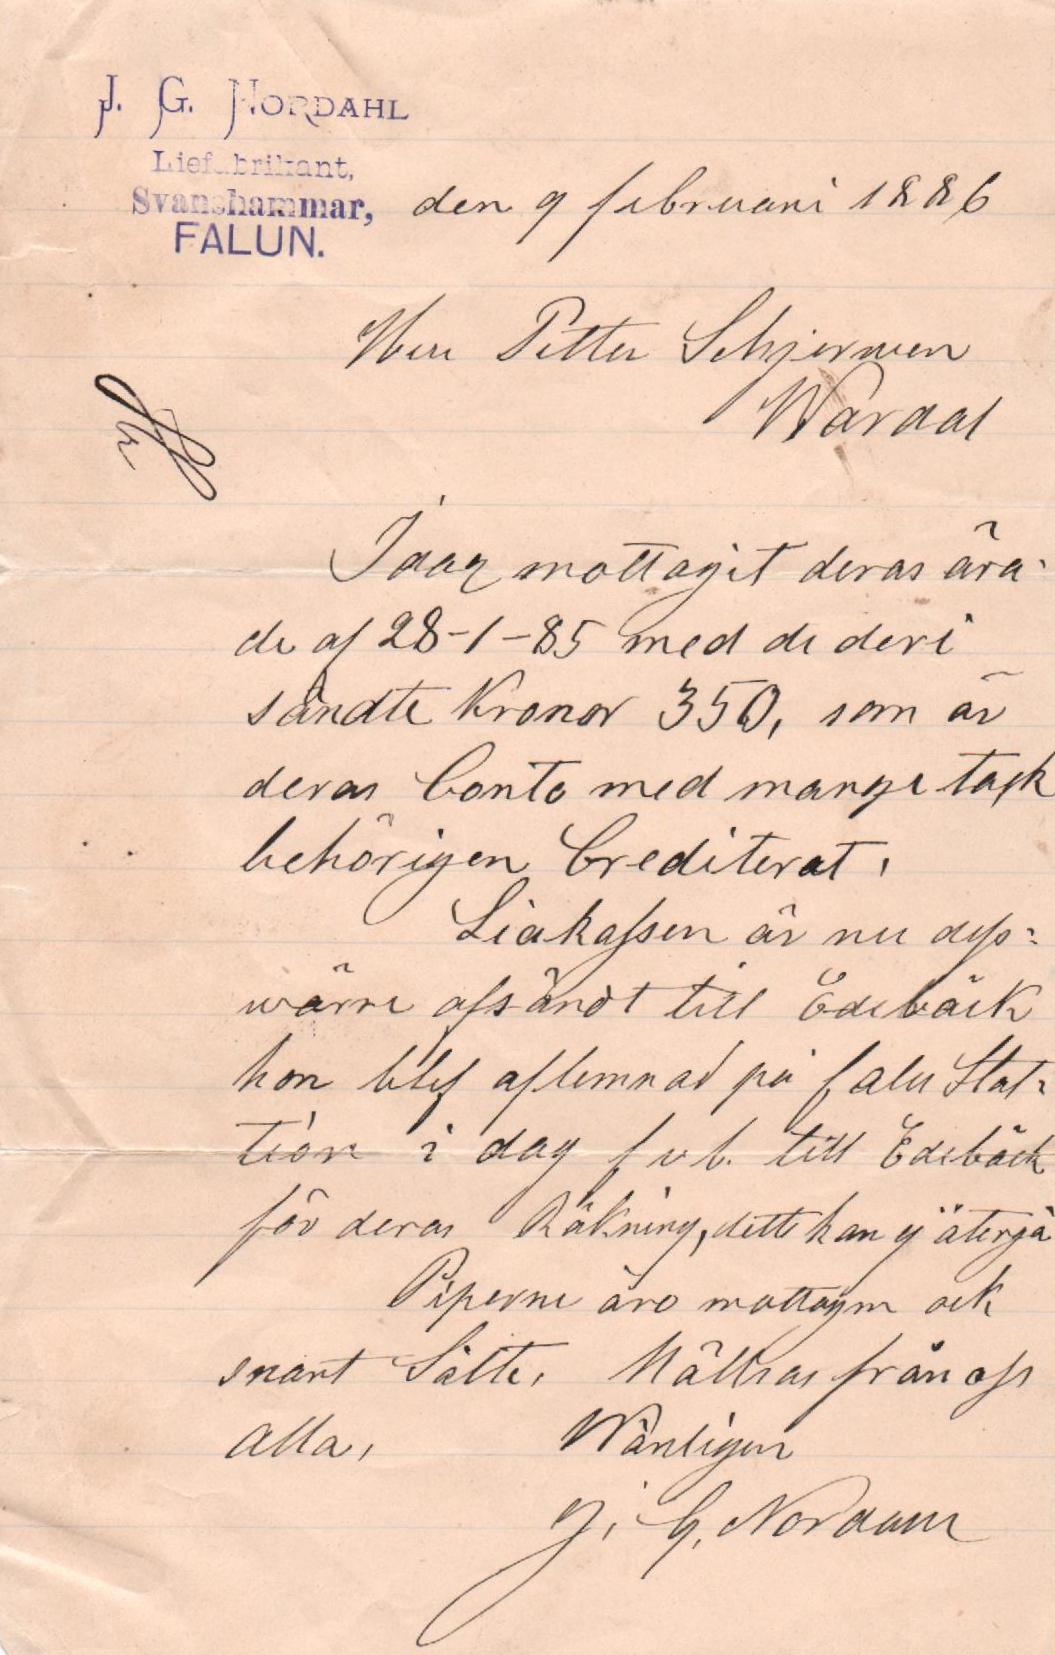 J. G. NORDAHL
Liefabrikant,
Svanshammar,
FALUN.
den 9 februari 1886
Herr Petter Schjerwen
Wardal
Idag mottagit deras ära-
de af 28-1-85 med de deri
sändte Kronor 350, som är
deras Conto med mange tack
behörigen Crediterat,
Liakassen är nu dess-
wärre afsändt till Edebäck
hon blef aflemnad på falu Stat-
tion i dag f v b. till Edebäck
för deras Räkning, dette kan ej återgå
Piperne äro mottagne ock
snart Sålte, Hälsas från oss
alla,
Wänligen
J. G. Nordahl